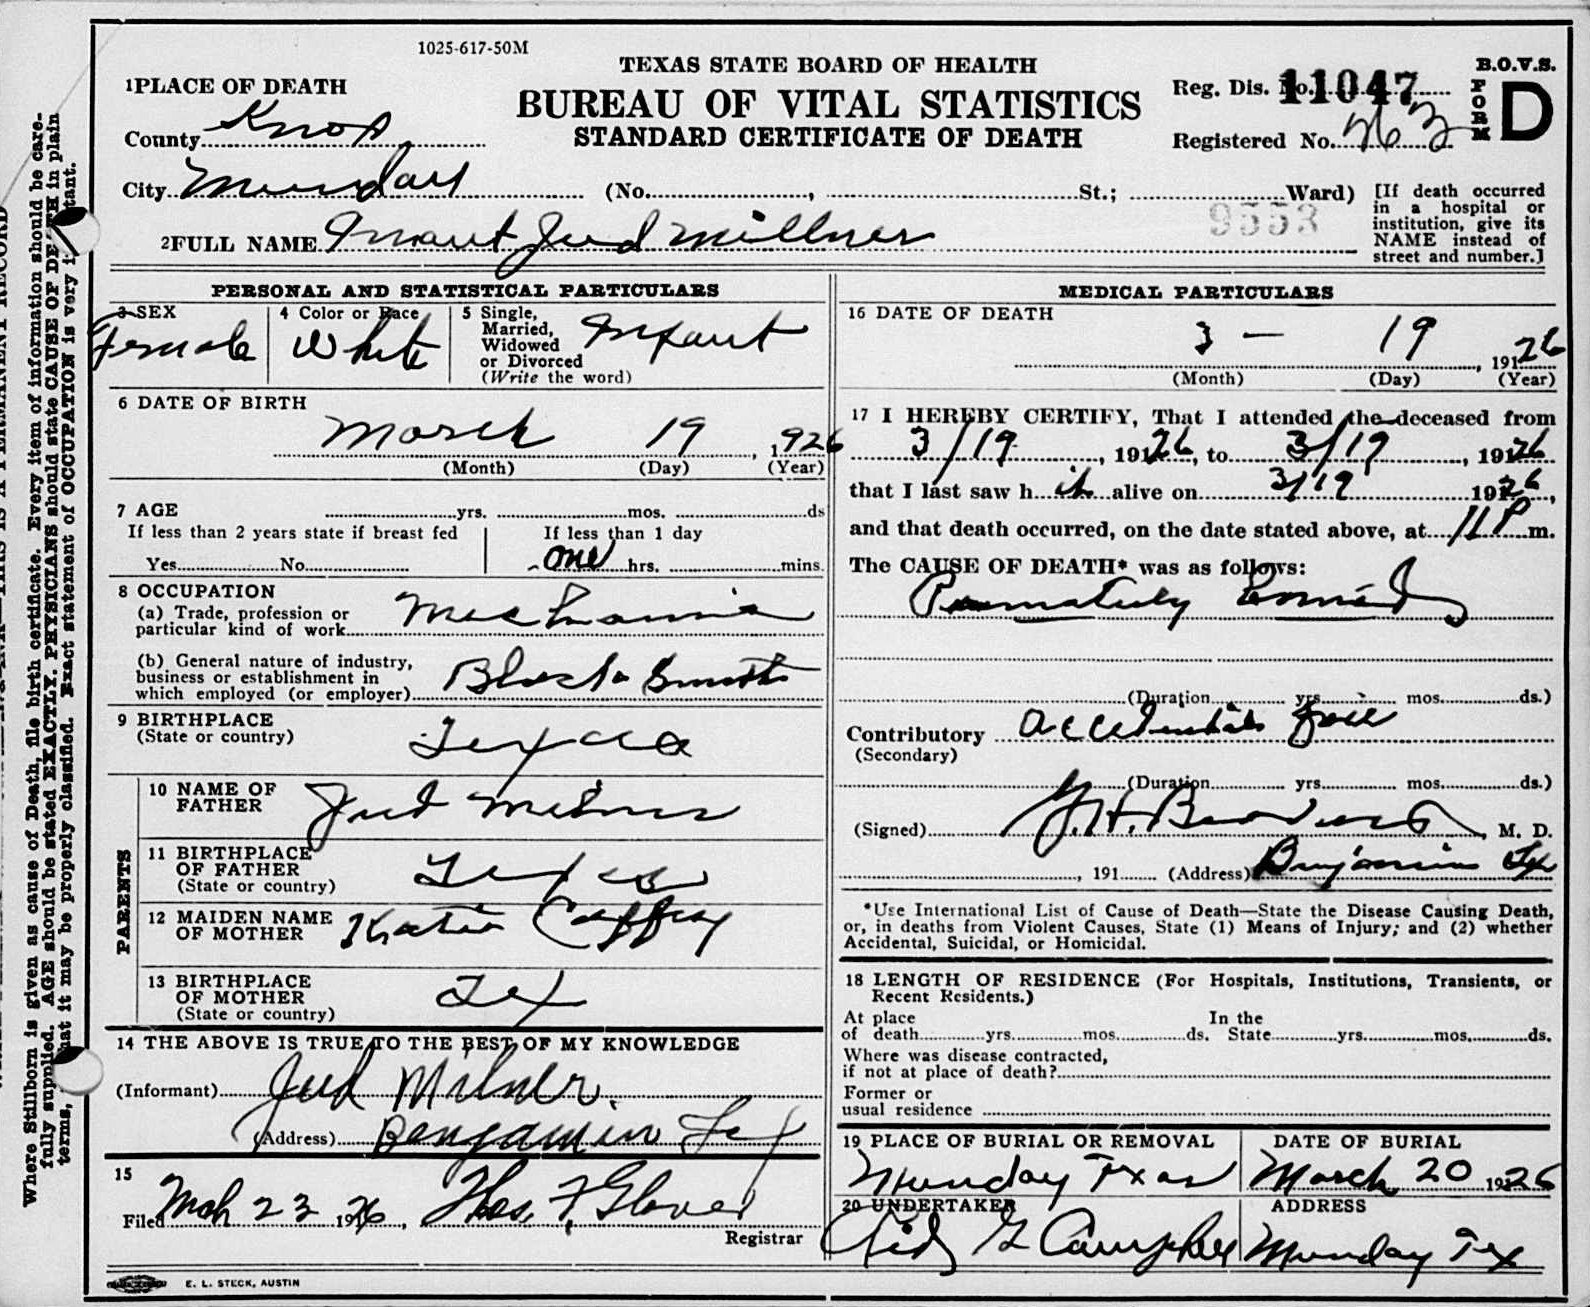 1025-617-50M
TEXAS STATE BOARD OF HEALTH
BUREAU OF VITAL STATISTICS
STANDARD CERTIFICATE OF DEATH
B.O.V.S.
FORM D
Reg. Dis. No. 11047
Registered No. 263
1 PLACE OF DEATH
County Knox
City Munday (No. , St.; Ward)
[If death occurred
in a hospital or
institution, give its
NAME instead of
street and number.]
9553
2 FULL NAME Infant Jud Millner
PERSONAL AND STATISTICAL PARTICULARS
3 SEX
Female
4 Color or Race
White
5 Single,
Married,
Widowed
or Divorced
(Write the word)
Infant
6 DATE OF BIRTH
March 19, 1926
(Month) (Day) (Year)
7 AGE yrs. mos. ds
If less than 2 years state if breast fed
Yes No
If less than 1 day
one hrs. mins.
8 OCCUPATION
(a) Trade, profession or
particular kind of work Mechanic
(b) General nature of industry,
business or establishment in
which employed (or employer) Black Smith
9 BIRTHPLACE
(State or country) Texas
PARENTS
10 NAME OF
FATHER Jud Milner
11 BIRTHPLACE
OF FATHER
(State or country) Texas
12 MAIDEN NAME
OF MOTHER Katie Caffey
13 BIRTHPLACE
OF MOTHER
(State or country) Tex
14 THE ABOVE IS TRUE TO THE BEST OF MY KNOWLEDGE
(Informant) Jud Milner.
(Address) Benjamin Tex
15
Filed Mch 23 1926, Thos. F. Glover
Registrar
E. L. STECK, AUSTIN
MEDICAL PARTICULARS
16 DATE OF DEATH
3 - 19, 1926
(Month) (Day) (Year)
17 I HEREBY CERTIFY, That I attended the deceased from
3/19, 1926, to 3/19, 1926
that I last saw h it alive on 3/19 1926,
and that death occurred, on the date stated above, at 11 P m.
The CAUSE OF DEATH* was as follows:
(Duration yrs. mos. ds.)
Contributory Accidental fall
(Secondary)
(Duration yrs. mos. ds.)
(Signed) , M. D.
, 191 (Address) Benjamin Tex
*Use International List of Cause of Death—State the Disease Causing Death,
or, in deaths from Violent Causes, State (1) Means of Injury; and (2) whether
Accidental, Suicidal, or Homicidal.
18 LENGTH OF RESIDENCE (For Hospitals, Institutions, Transients, or
Recent Residents.)
At place In the
of death yrs. mos. ds. State yrs. mos. ds.
Where was disease contracted,
if not at place of death?
Former or
usual residence
19 PLACE OF BURIAL OR REMOVAL
Munday Texas
DATE OF BURIAL
March 20 1926
20 UNDERTAKER
G Campbell
ADDRESS
Munday Tex
Where Stillborn is given as cause of Death, file birth certificate. Every item of information should be care-
fully supplied. AGE should be stated EXACTLY. PHYSICIANS should state CAUSE OF DEATH in plain
terms, that it may be properly classified. Exact statement of OCCUPATION is very important.